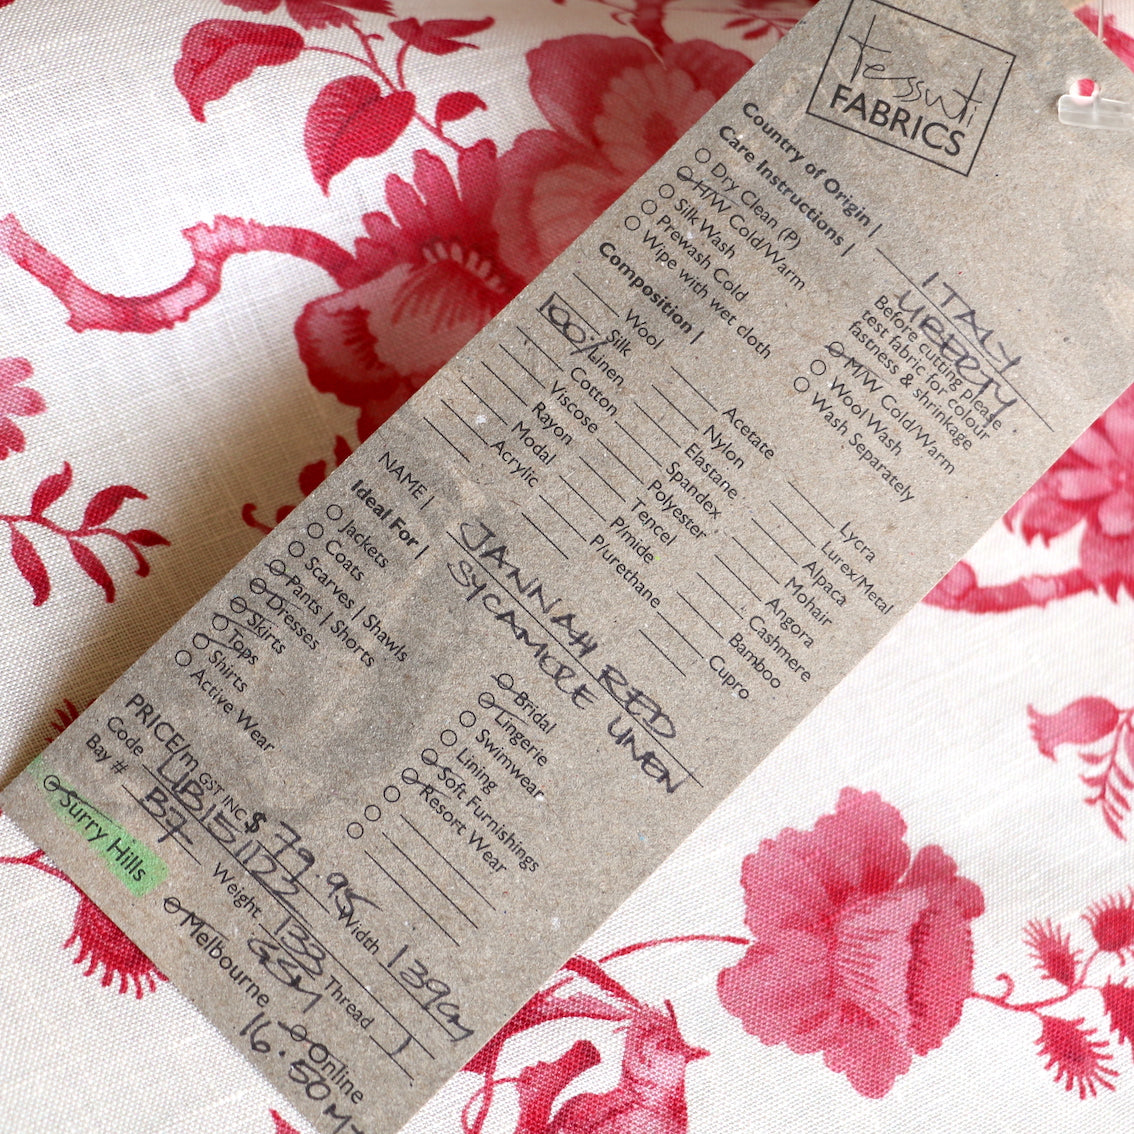 tessuti
FABRICS
Country of Origin | ITALY
Care Instructions | LIBERTY
Dry Clean (P)
H/W Cold/Warm
Silk Wash
Prewash Cold
Wipe with wet cloth
Before cutting please
test fabric for colour
fastness & shrinkage
M/W Cold/Warm
Wool Wash
Wash Separately
Composition |
Wool
Silk
100% Linen
Cotton
Viscose
Rayon
Modal
Acrylic
Acetate
Nylon
Elastane
Spandex
Polyester
Tencel
P/mide
Plurethane
Lycra
Lurex/Metal
Alpaca
Mohair
Angora
Cashmere
Bamboo
Cupro
NAME | JANNAH RED
SYCAMORE LINEN
Ideal For |
Jackets
Coats
Scarves | Shawls
Pants | Shorts
Dresses
Skirts
Tops
Shirts
Active Wear
Bridal
Lingerie
Swimwear
Lining
Soft Furnishings
Resort Wear
PRICE/m GST INC $ 79.95 Width 139cm
Code LIB151122 Thread 1
Bay # B7 Weight 133 GSM
Surry Hills Melbourne Online
16.50m